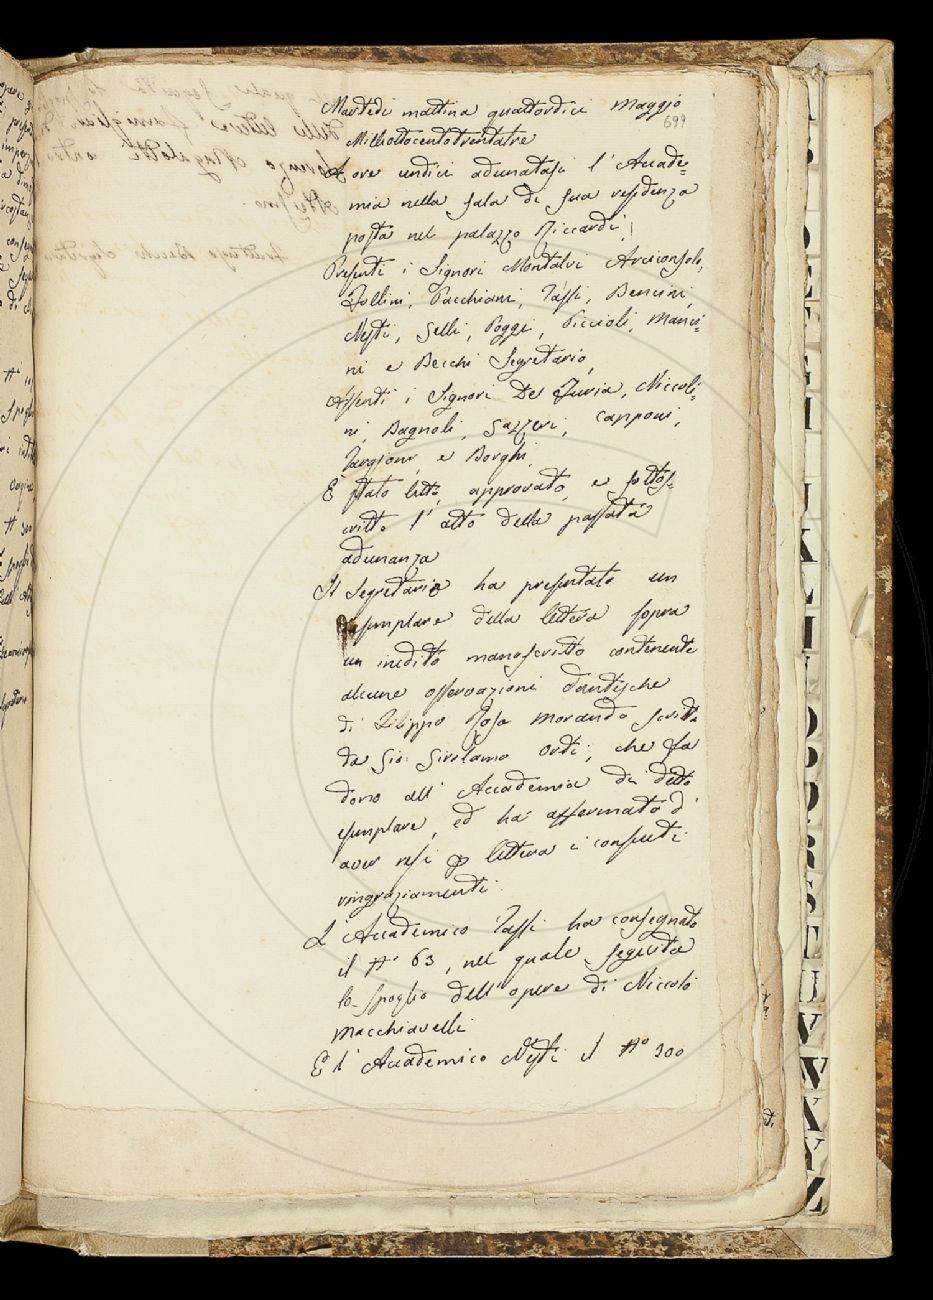 Martedì mattina quattordici Maggio
699
Milleottocentotrentatre
A ore undici adunatasi l'Accade=
mia nella sala di sua residenza
posta nel palazzo Riccardi
Presenti i Signori Montalvi Arciconsolo,
Follini, Pacchiani, Tassi, Bencini,
Nesti, Selli, Poggi, Piccioli, Manci=
ni e Becchi Segretario,
Assenti i Signori Del Furia, Niccoli=
ni, Bagnoli, Gazzeri, Capponi,
Targioni, e Borghi
È stato letto, approvato, e sottos=
critto l'atto della passata
adunanza
Il Segretario ha presentato un
esemplare della lettera sopra
un inedito manoscritto contenente
alcune osservazioni dantesche
di Filippo Rosa Morando scritta
da Gio: Girolamo Orti, che fa
dono all'Accademia di detto
esemplare, ed ha affermato d'
aver resi per lettera i consueti
ringraziamenti
L'Accademico Tassi ha consegnato
il N° 63, nel quale seguita
lo spoglio dell'opere di Niccolò
Macchiavelli
E l'Accademico Nesti il N° 300
A
E
F
G
H
I
K
L
M
N
O
P
Q
R
S
T
U
V
W
X
Y
Z